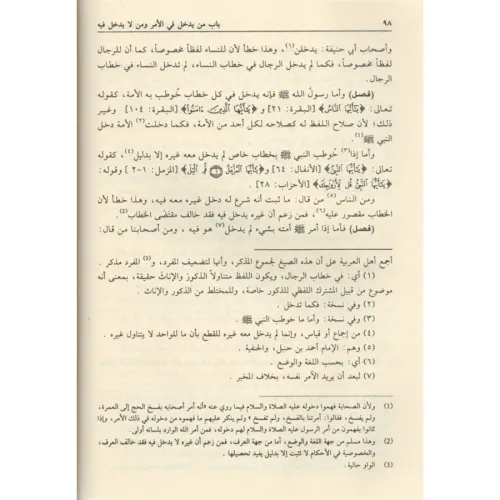 ٩٨ باب من يدخل في الأمر ومن لا يدخل فيه
وأصحاب أبي حنيفة: يدخلن(١)، وهذا خطأ لأن للنساء لفظاً مخصوصاً، كما أن للرجال
لفظاً مخصوصاً، فكما لم يدخل الرجال في خطاب النساء، لم تدخل النساء في خطاب
الرجال.
(فصل) وأما رسول الله ﷺ فإنه يدخل في كل خطاب خوطب به الأمة، كقوله
تعالى: ﴿يَٰٓأَيُّهَا ٱلنَّاسُ﴾ [البقرة: ٢١] و﴿يَٰٓأَيُّهَا ٱلَّذِينَ ءَامَنُوا﴾ [البقرة: ١٠٤] وغير
ذلك؛ لأن صلاح اللفظ له كصلاحه لكل أحد من الأمة، فكما دخلت(٢) الأمة دخل
النبي ﷺ(1).
وأما إذا(٣) خوطب النبي ﷺ بخطاب خاص لم يدخل معه غيره إلا بدليل(٤)، كقوله
تعالى: ﴿يَٰٓأَيُّهَا ٱلنَّبِيُّ﴾ [الأنفال: ٦٤] و﴿يَٰٓأَيُّهَا ٱلْمُزَّمِّلُ ۝ قُمِ ٱلَّيْلَ﴾ [المزمل: ١-٢] وقوله:
﴿يَٰٓأَيُّهَا ٱلنَّبِيُّ قُل لِّأَزْوَٰجِكَ﴾ [الأحزاب: ٢٨].
ومن الناس(٥) من قال: ما ثبت أنه شرع له دخل غيره معه فيه، وهذا خطأ لأن
الخطاب مقصور عليه(٦)، فمن زعم أن غيره يدخل فيه فقد خالف مقتضى الخطاب(2).
(فصل) فأما إذا أمر ﷺ أمته بشيء لم يدخل(٧) هو فيه، ومن أصحابنا من قال:
أجمع أهل العربية على أن هذه الصيغ لجموع المذكر، وأنها لتضعيف المفرد، و(3) المفرد مذكر.
(١) أي: في خطاب الرجال، ويكون اللفظ متناولاً الذكور والإناث حقيقة، بمعنى أنه
موضوع من قبيل المشترك اللفظي للذكور خاصة، وللمختلط من الذكور والإناث.
(٢) وفي نسخة: فكما تدخل.
(٣) وفي نسخة: وأما ما خوطب النبي ﷺ.
(٤) من إجماع أو قياس، وإنما لم يدخل معه غيره للقطع بأن ما للواحد لا يتناول غيره.
(٥) وهم: الإمام أحمد بن حنبل، والحنفية.
(٦) أي: بحسب اللغة والوضع.
(٧) لبعد أن يريد الآمر نفسه، بخلاف المخبر.
(1) ولأن الصحابة فهموا دخوله عليه الصلاة والسلام فيما روي عنه «أنه أمر أصحابه بفسخ الحج إلى العمرة،
ولم يفسخ، فقالوا: أمرتنا بالفسخ، ولم تفسخ» ولم ينكر عليهم ما فهموه من دخوله في ذلك الأمر، وإذا
كانوا يفهمون من أمر الرسول عليه الصلاة والسلام لهم دخوله، فمن أمر الله الوارد بلسانه أولى.
(2) وهذا مسلم من جهة اللغة والوضع، أما من جهة العرف، فمن زعم أن غيره لا يدخل فيه فقد خالف العرف،
والخصوصية في الأحكام لا تثبت إلا بدليل يفيد تحصيلها.
(3) الواو حالية.